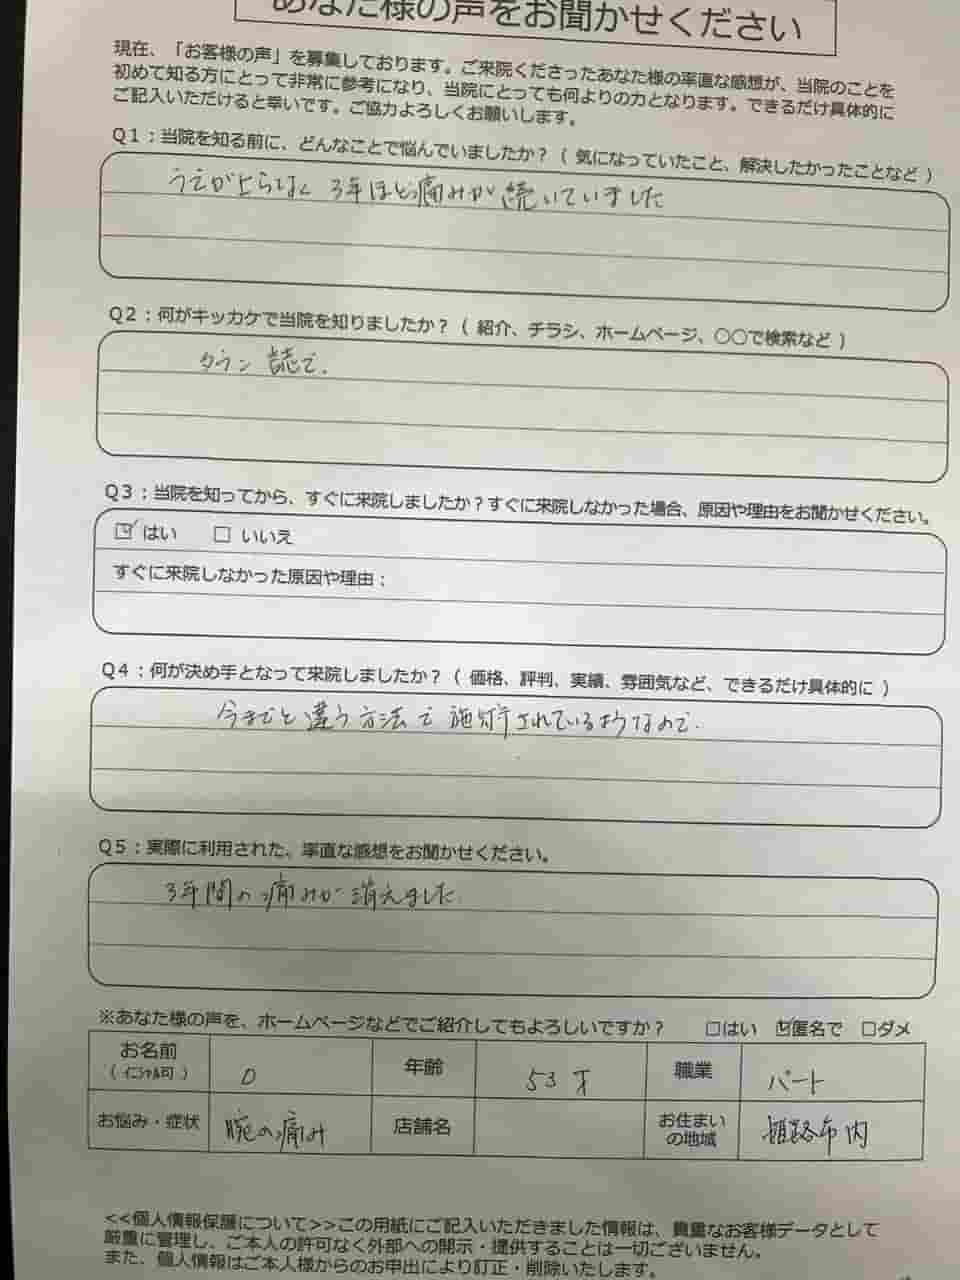 あなた様の声をお聞かせください
現在、「お客様の声」を募集しております。ご来院くださったあなた様の率直な感想が、当院のことを
初めて知る方にとって非常に参考になり、当院にとっても何よりの力となります。できるだけ具体的に
ご記入いただけると幸いです。ご協力よろしくお願いします。
Q1：当院を知る前に、どんなことで悩んでいましたか？（ 気になっていたこと、解決したかったことなど ）
うでが上らなく 3年ほど痛みが続いていました
Q2：何がキッカケで当院を知りましたか？（ 紹介、チラシ、ホームページ、〇〇で検索など ）
タウン誌で.
Q3：当院を知ってから、すぐに来院しましたか？すぐに来院しなかった場合、原因や理由をお聞かせください。
☑ はい □ いいえ
すぐに来院しなかった原因や理由：
Q4：何が決め手となって来院しましたか？（ 価格、評判、実績、雰囲気など、できるだけ具体的に ）
今までと違う方法で施術されているようなので.
Q5：実際に利用された、率直な感想をお聞かせください。
3年間の痛みが消えました.
※あなた様の声を、ホームページなどでご紹介してもよろしいですか？ □はい ☑匿名で □ダメ
お名前（ イニシャル可 ） O 年齢 53才 職業 パート
お悩み・症状 腕の痛み 店舗名 お住まいの地域 姫路市内
<<個人情報保護について>>この用紙にご記入いただきました情報は、貴重なお客様データとして
厳重に管理し、ご本人の許可なく外部への開示・提供することは一切ございません。
また、個人情報はご本人様からのお申出により訂正・削除いたします。